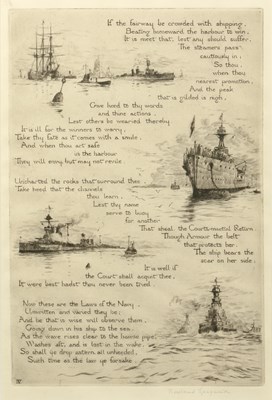 If the fairway be crowded with shipping,
Beating homeward the harbour to win,
It is meet that, lest any should suffer,
The steamers pass
cautiously in;
So thou,
when thou
nearest promotion,
And the peak
that is gilded is nigh,
Give heed to thy words
and thine actions,
Lest others be wearied thereby
It is ill for the winners to worry,
Take thy fate as it comes with a smile,
And when thou art safe
in the harbour
They will envy, but may not revile.
Uncharted the rocks that surround thee,
Take heed that the channels
thou learn,
Lest thy name
serve to buoy
for another
That shoal, the Courts-martial Return.
Though Armour the belt
that protects her,
The ship bears the
scar on her side;
It is well if
the Court shall acquit thee;
It were best hadst thou never been tried.
Now these are the Laws of the Navy,
Unwritten and varied they be;
And he that is wise will observe them,
Going down in his ship to the sea.
As the wave rises clear to the hawse pipe,
Washes aft, and is lost in the wake,
So shall ye drop astern, all unheeded,
Such time as the law ye forsake.